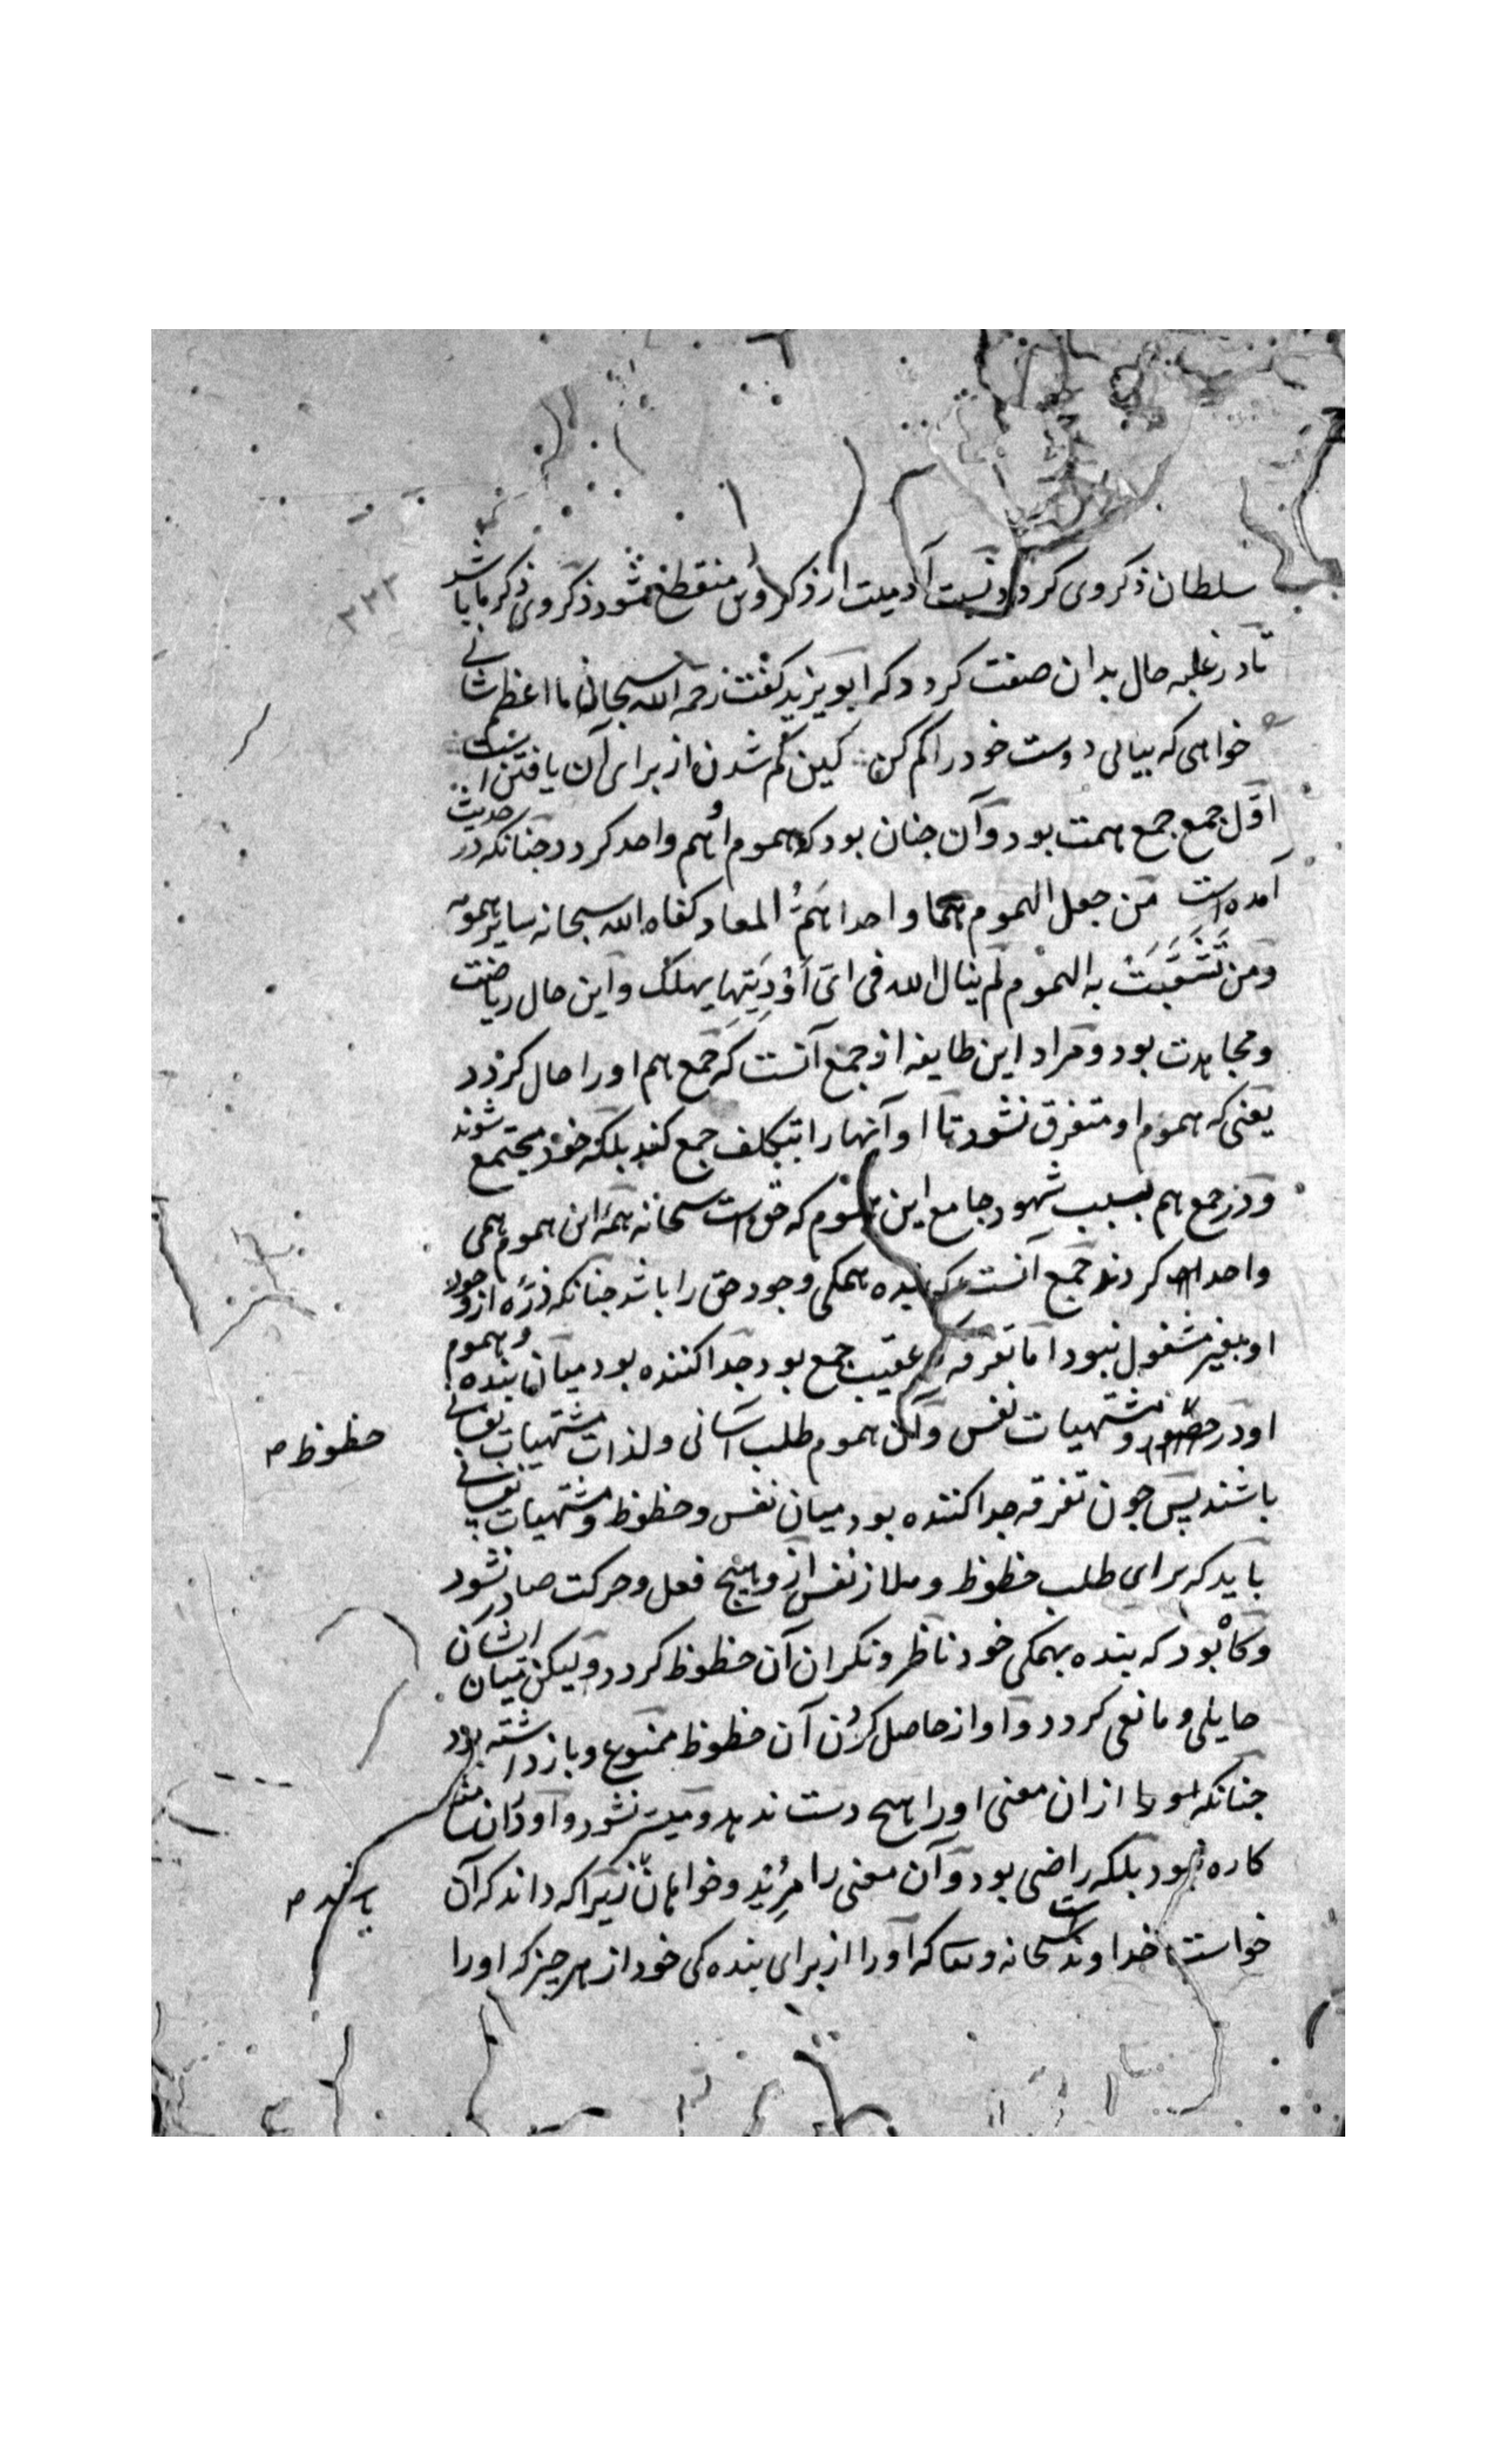 سلطان ذکر وی کردد و نسبت آدمیت از ذکر وی منقطع شود ذکر وی ذکر ما باشد
تا در غلبه حال بدان صفت کردد که ابو یزید کفت رحمه الله سبحانی ما اعظم شانی
خواهی که بیابی دوست خود را کم کن کین کم شدن از برای آن یافتن است
اوّل جمع جمع همت بود و آن جنان بود که هموم او هم واحد کردد جنانکه در حدیث
آمده است من جعل الهموم همّا واحدا هَمُّ المعاد کفاه الله سبحانه سایر همومه
ومن تَشَعَّبَتْ به الهموم لم ینال الله فی ای اَوْدِیَتِها یهلک و این حال ریاضت
و مجاهدت بود و مراد این طایفه از جمع آنست که جمع هم او را حال کردد
یعنی که هموم او متفرق نشود تا او آنها را بتکلف جمع کند بلکه خود مجتمع شوند
و در جمع هم بسبب شهود جامع این هموم که حق است سبحانه همه این هموم همی
واحد کردند جمع آنست که بنده بهمکی وجود حق را باشد جنانکه ذرّه از وجود
او بغیر مشغول نبود اما تفرقه که عقیب جمع بود جدا کننده بود میان بنده و هموم
او در و مشتهیات نفس و آن هموم طلب آسانی و لذات مشتهیات نفسانی
حظوظ ص
باشند پس جون تفرقه جدا کننده بود میان نفس و حظوظ و مشتهیات نفسانی
باید که برای طلب حظوظ و ملاذ نفس از و هیچ فعل و حرکت صادر نشود
و کاه بود که بنده بهمکی خود ناظر و نکران آن حظوظ کردد و لیکن میان ایشان
حایلی و مانعی کردد و او از حاصل کردن آن حظوظ ممنوع و باز داشته بود
جنانکه از ان معنی او را هیج دست ندهد و میسّر نشود و او از آن منع
کاره نبود بلکه راضی بود و آن معنی را مرید و خواهان زیرا که داند که آن
خواست خداوند است سبحانه و تعا که او را از برای بنده کی خود از هر جیز که او را